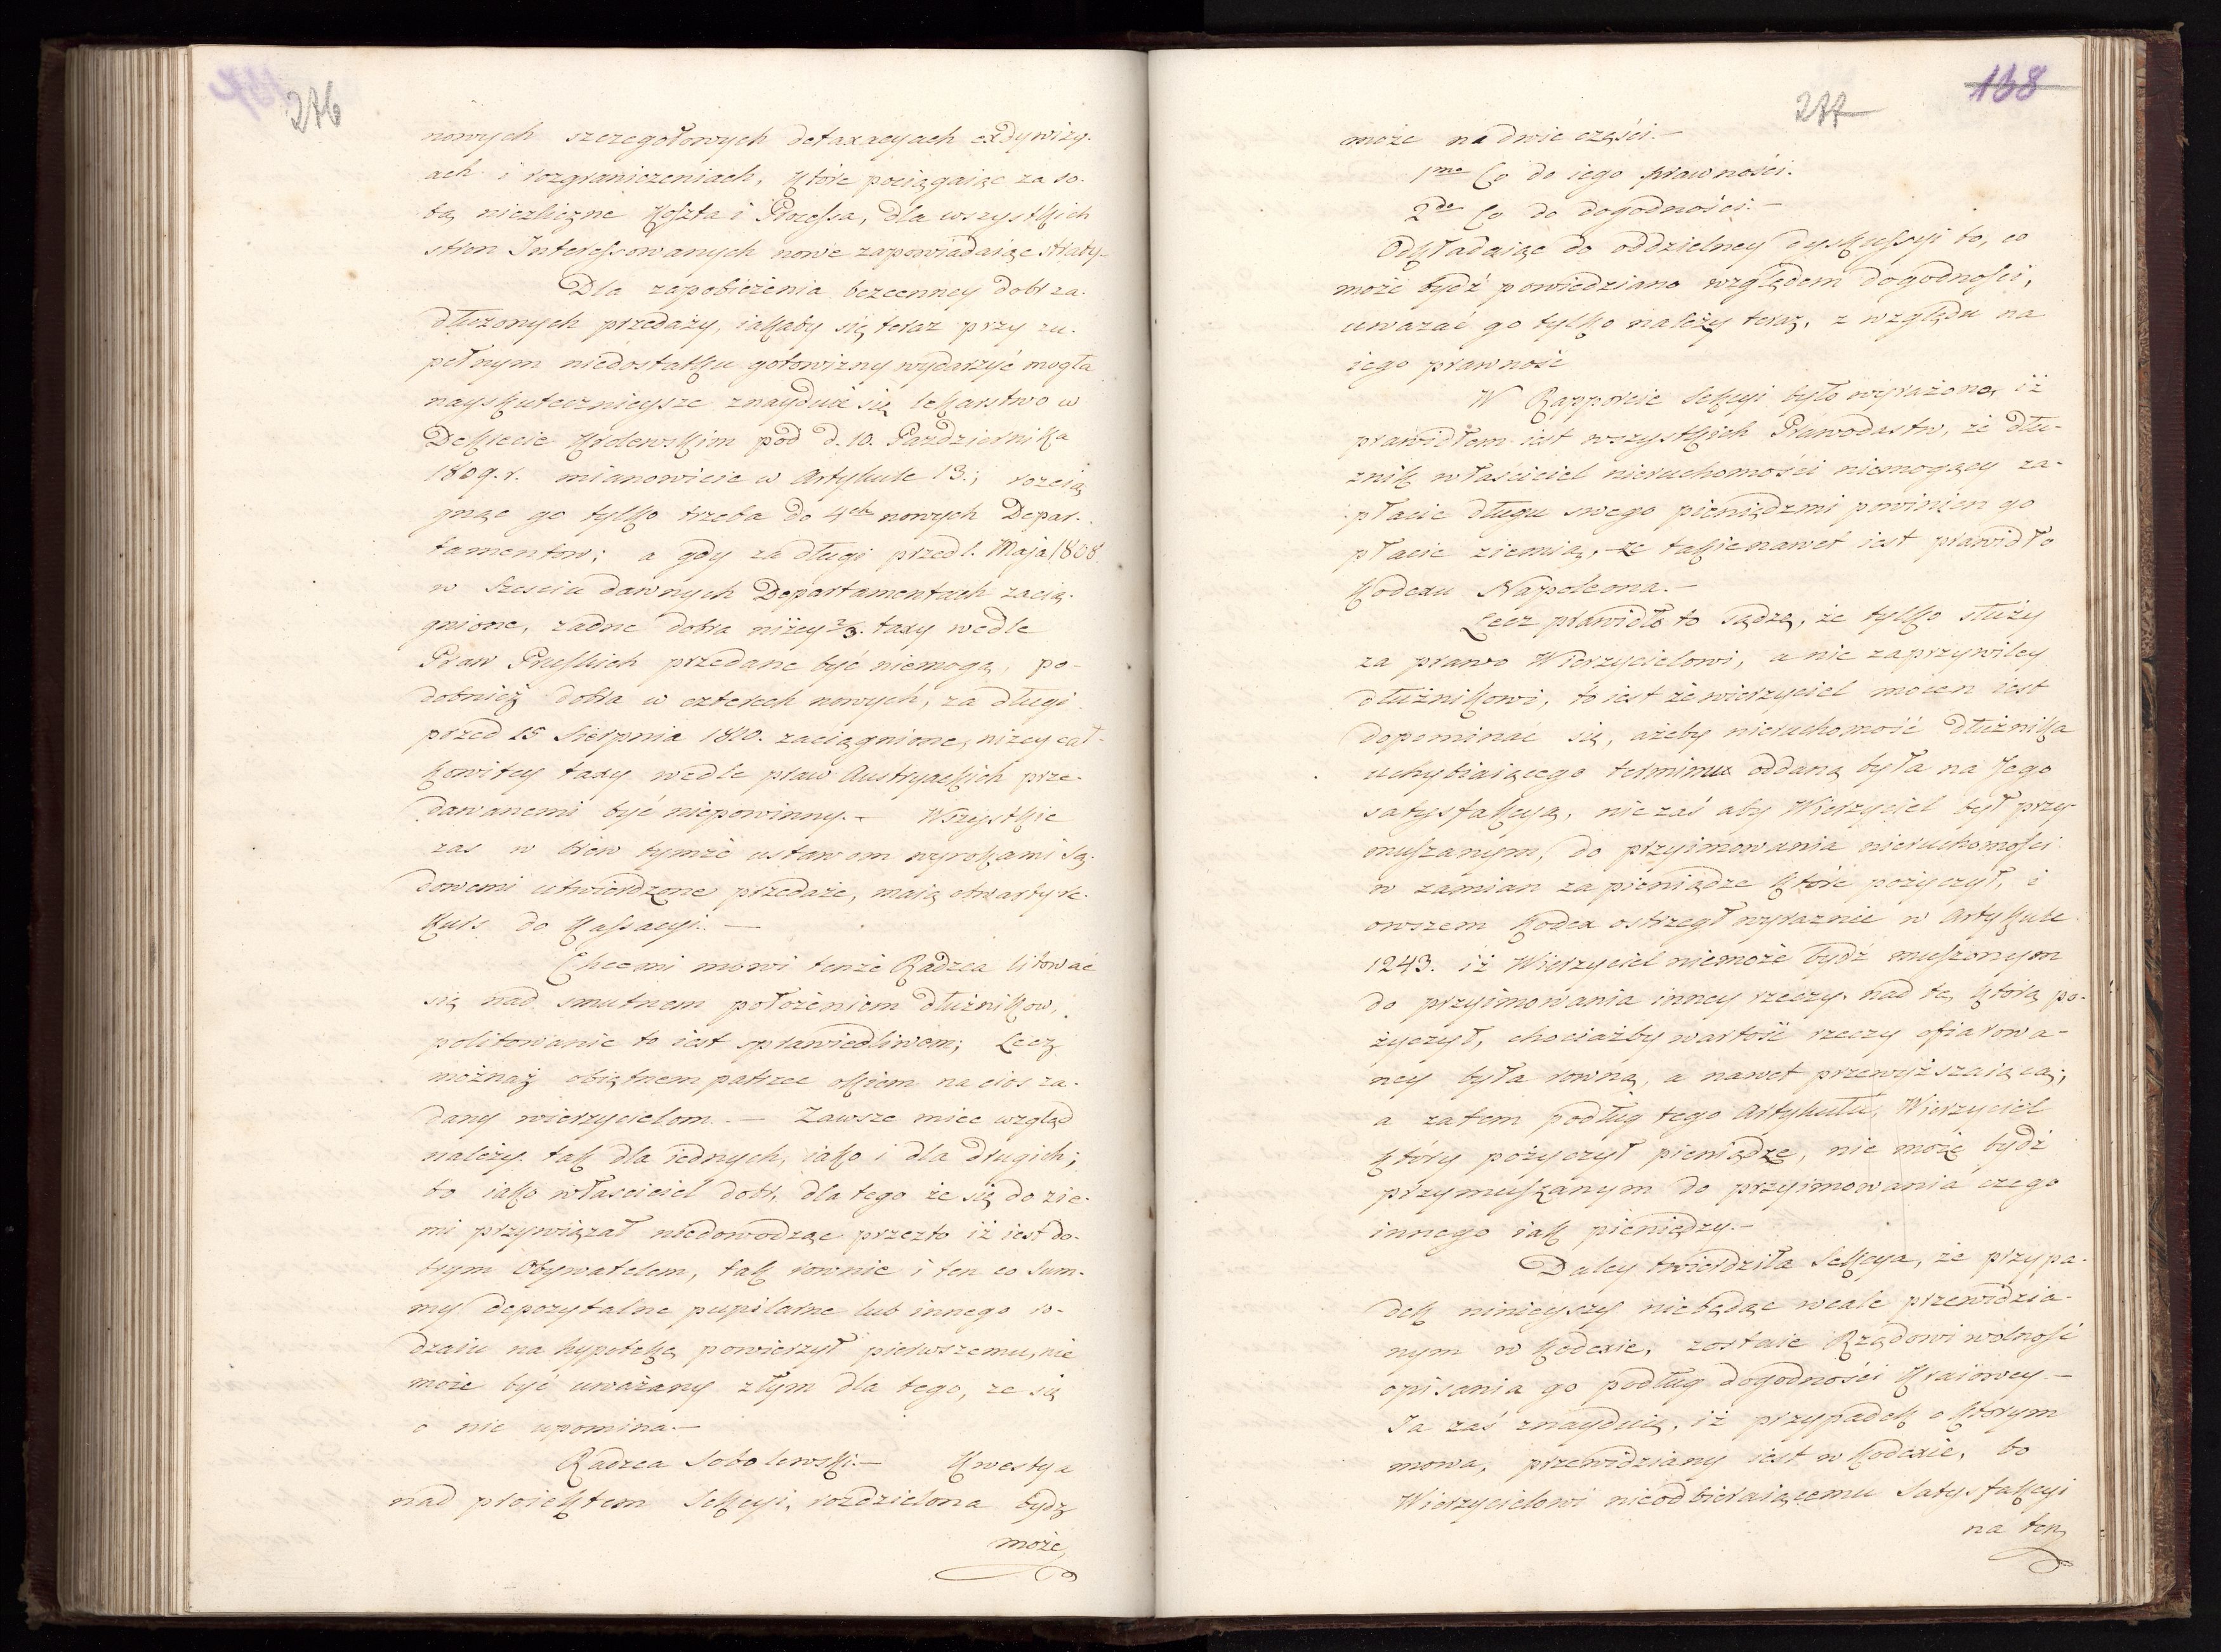 276
nowych szczegołowych detaxacyach exdywizy-
ach i rozgraniczeniach, które pociągaiąc za so-
bą niezliczne koszta i Processa, dla wszystkich
stron Interessowanych nowe zapowiadaiąc straty.
Dla zapobieżenia bezcenney dobr za-
dłużonych przedaży, iakaby się teraz przy zu-
pełnym niedostatku gotowizny wydarzyć mogła
nayskutecznieysze znayduie się lekarstwo w
Dekrecie Krolewskim pod d. 10. Pazdziernika
1809. r. mianowicie w Artykule 13.; rozcią
gnąc go tylko trzeba do 4ch nowych Depar-
tamentow; a gdy za długi przed 1. Maja 1808.
w Szesciu dawnych Departamentach zacią-
gnione, zadne dobra niżey 2/3. taxy wedle
Praw Pruskich przedane być niemogą, po-
dobnież dobra w czterech nowych, za długi
przed 15 Sierpnia 1810. zaciągnione, niżey cał-
kowitey taxy wedle praw Austryackich prze-
dawanemi być niepowinny. – Wszystkie
zas w brew tymże ustawom wyrokami Są-
dowemi utwierdzone przedaże, maią otwarty re-
kurs do Kassacyi. –
Chcemi mowi tenże Radzca litować
się nad smutnem położeniem dłużnikow,
politowanie to iest sprawiedliwem; Lecz
możnaż obiętnem patrzec okiem na cios za-
dany wierzycielom. – Zawsze miec wzgląd
należy tak dla iednych, iako i dla drugich;
bo iako własciciel dobr, dla tego że się do zie-
mi przywiązał niedowodząc przezto iż iest do-
brym Obywatelem, tak rownie i ten co Sum-
my depozytalne pupilarne lub innego ro-
dzaiu na hypotekę powierzył pierwszemu, nie
może być uważany złym dla tego, ze się
o nie upomina. –
Radzca Sobolewski. – Kwestya
nad proiektem Sekcyi, rozdzielona bydz
może,
168
277
może na dwie części. –
1mo Co do iego prawności.
2do Co do dogodności. –
Odkładaiąc do oddzielney dyskussyi to, co
może bydź powiedziano względem dogodności,
uwazać go tylko należy teraz, z względu na
iego prawność
W Rapporcie Sekcyi było wyrażone, iż
prawidłem iest wszystkich Prawodastw, że dłu-
żnik właściciel nieruchomości niemogący za-
płacic długu swego pieniądzmi powinien go
płacic ziemią, że takie nawet iest prawidło
Kodexu Napoleona. –
Lecz prawidło to sądzę, że tylko służy
za prawo Wierzycielowi, a nie zaprzywiley
dłużnikowi, to iest że wierzyciel mocen iest
dopominać się, ażeby nieruchomość dłużnika
uchybiaiącego terminu oddaną była na Jego
satysfakcyą, nie zaś aby Wierzyciel był przy-
muszanym, do przyimowania nieruchomości
w zamian za pieniądze które pożyczył, i
owszem Kodex ostrzegł wyraznie w Artykule
1243. iż Wierzyciel niemoże bydź muszonym
do przyimowania inney rzeczy nad tę którą po-
życzył, chociażby wartość rzeczy ofiarowa-
ney była rowną, a nawet przewyższaiącą;
a zatem podług tego Artykułu, Wierzyciel
który pożyczył pieniądze, nie może bydź
przymuszanym do przyimowania czego
innego iak pieniędzy. –
Daley twierdziła Sekcya, że przypa-
dek ninieyszy niebędąc wcale przewidzia-
nym w kodexie, zostaie Rządowi wolność
opisania go podług dogodności Kraiowey. –
Ja zaś znayduię, iż przypadek o którym
mowa, przewidziany iest w kodexie, bo
Wierzycielowi nieodbieraiącemu Satysfakcyi
na ten